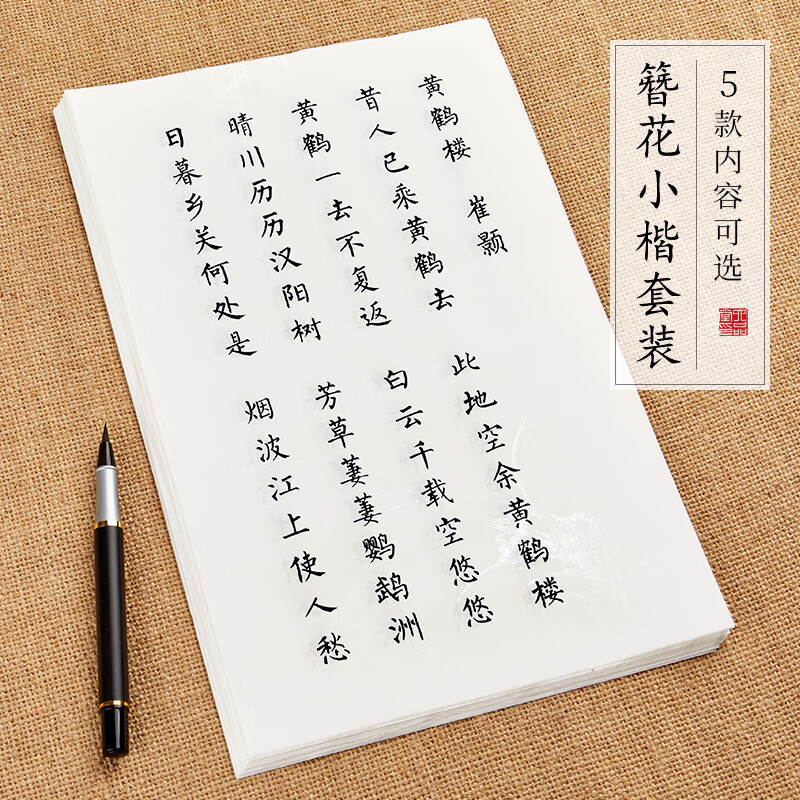 黄鹤楼 崔颢
昔人已乘黄鹤去
此地空余黄鹤楼
黄鹤一去不复返
白云千载空悠悠
晴川历历汉阳树
芳草萋萋鹦鹉洲
日暮乡关何处是
烟波江上使人愁
5款内容可选
簪花小楷套装